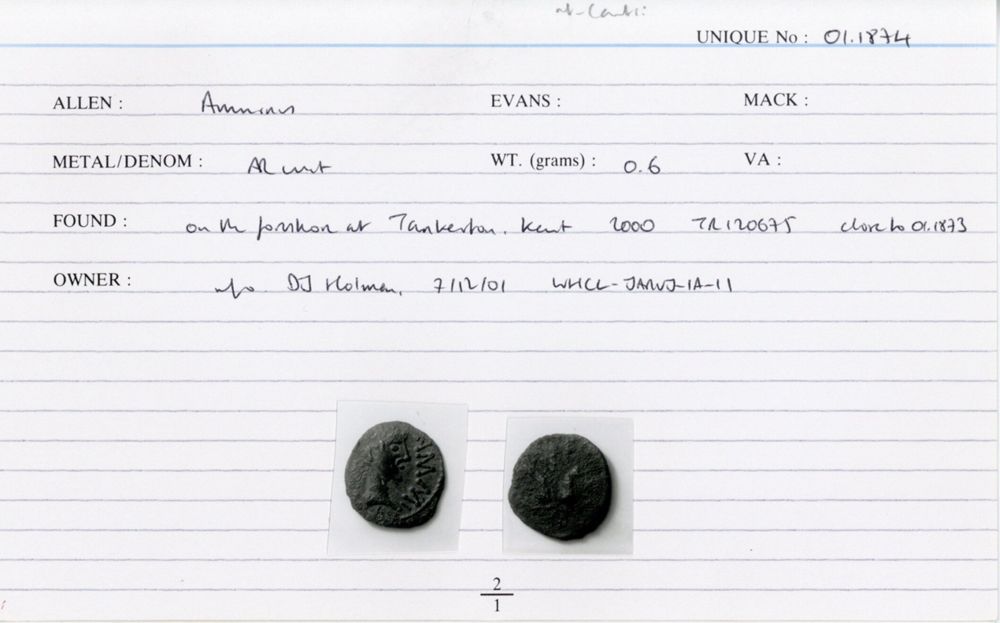 Canti:
UNIQUE No : 01.1874
ALLEN : Amminus EVANS : MACK :
METAL/DENOM : AR unit WT. (grams) : 0.6 VA :
FOUND : on the foreshore at Tankerton, Kent 2000 TR 120675 close to 01.1873
OWNER : DJ Holman, 7/12/01 WHCL-JANVJ-IA-11
AMMI
2
1